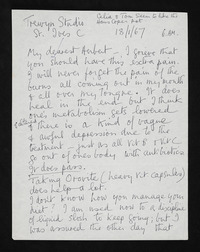 Trewyn Studio
St. Ives C
18/1/67 6 AM.
My dearest Herbert – I guess that
you should have this extra pain.
I will never forget the pain of the
burns all coming out in my mouth
& all over my tongue. It does
heal in the end but I think
ones metabolism gets lowered
& there is a kind of vague
awful depression due to the
treatment – just as all Vit B & Vit C
go out of ones body with antibiotics
It does pass.
Taking Orovite (heavy Vit capsules)
does help a lot.
I don't know how you manage your
meat? I am used now to a discipline
of liquid slosh to keep going; but I
was assured the other day that